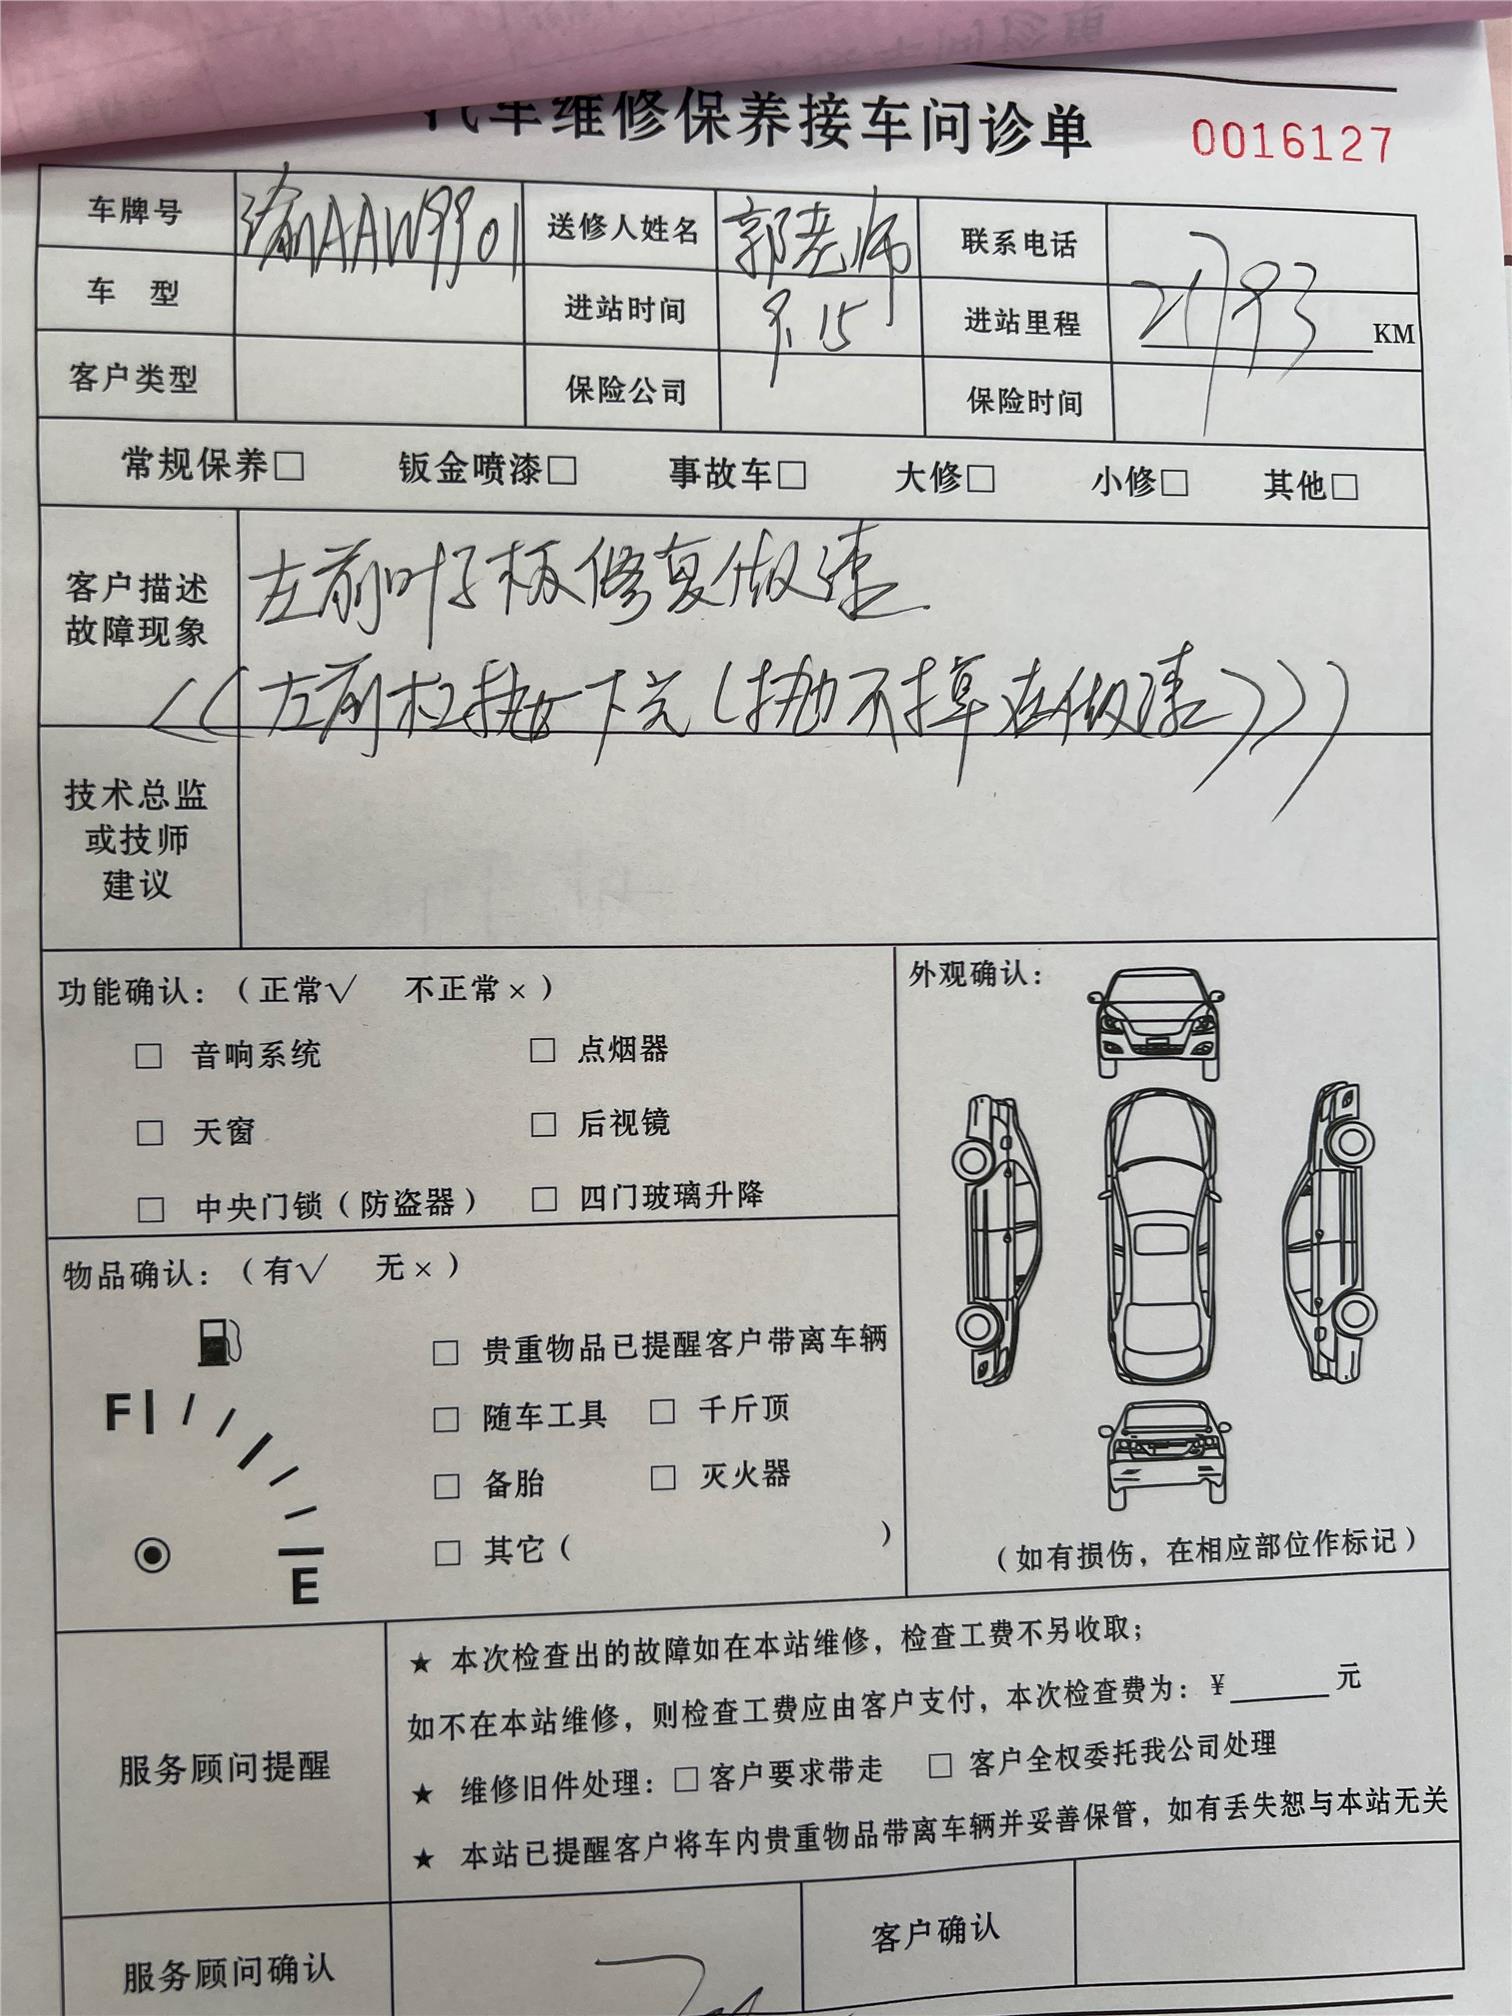 汽车维修保养接车问诊单 0016127
车牌号 渝AAW9901 送修人姓名 郭老师 联系电话
车 型 进站时间 8.15 进站里程 21793 KM
客户类型 保险公司 保险时间
常规保养□ 钣金喷漆□ 事故车□ 大修□ 小修□ 其他□
客户描述
故障现象
左前叶子板修复做漆
((左前杠抛一下光(抛不掉在做漆)))
技术总监
或技师
建议
功能确认：（正常√ 不正常×）
□ 音响系统 □ 点烟器
□ 天窗 □ 后视镜
□ 中央门锁（防盗器） □ 四门玻璃升降
外观确认：
（如有损伤，在相应部位作标记）
物品确认：（有√ 无×）
F
E
□ 贵重物品已提醒客户带离车辆
□ 随车工具 □ 千斤顶
□ 备胎 □ 灭火器
□ 其它（ ）
服务顾问提醒
★ 本次检查出的故障如在本站维修，检查工费不另收取；
如不在本站维修，则检查工费应由客户支付，本次检查费为：￥______元
★ 维修旧件处理：□客户要求带走 □ 客户全权委托我公司处理
★ 本站已提醒客户将车内贵重物品带离车辆并妥善保管，如有丢失恕与本站无关
服务顾问确认 客户确认